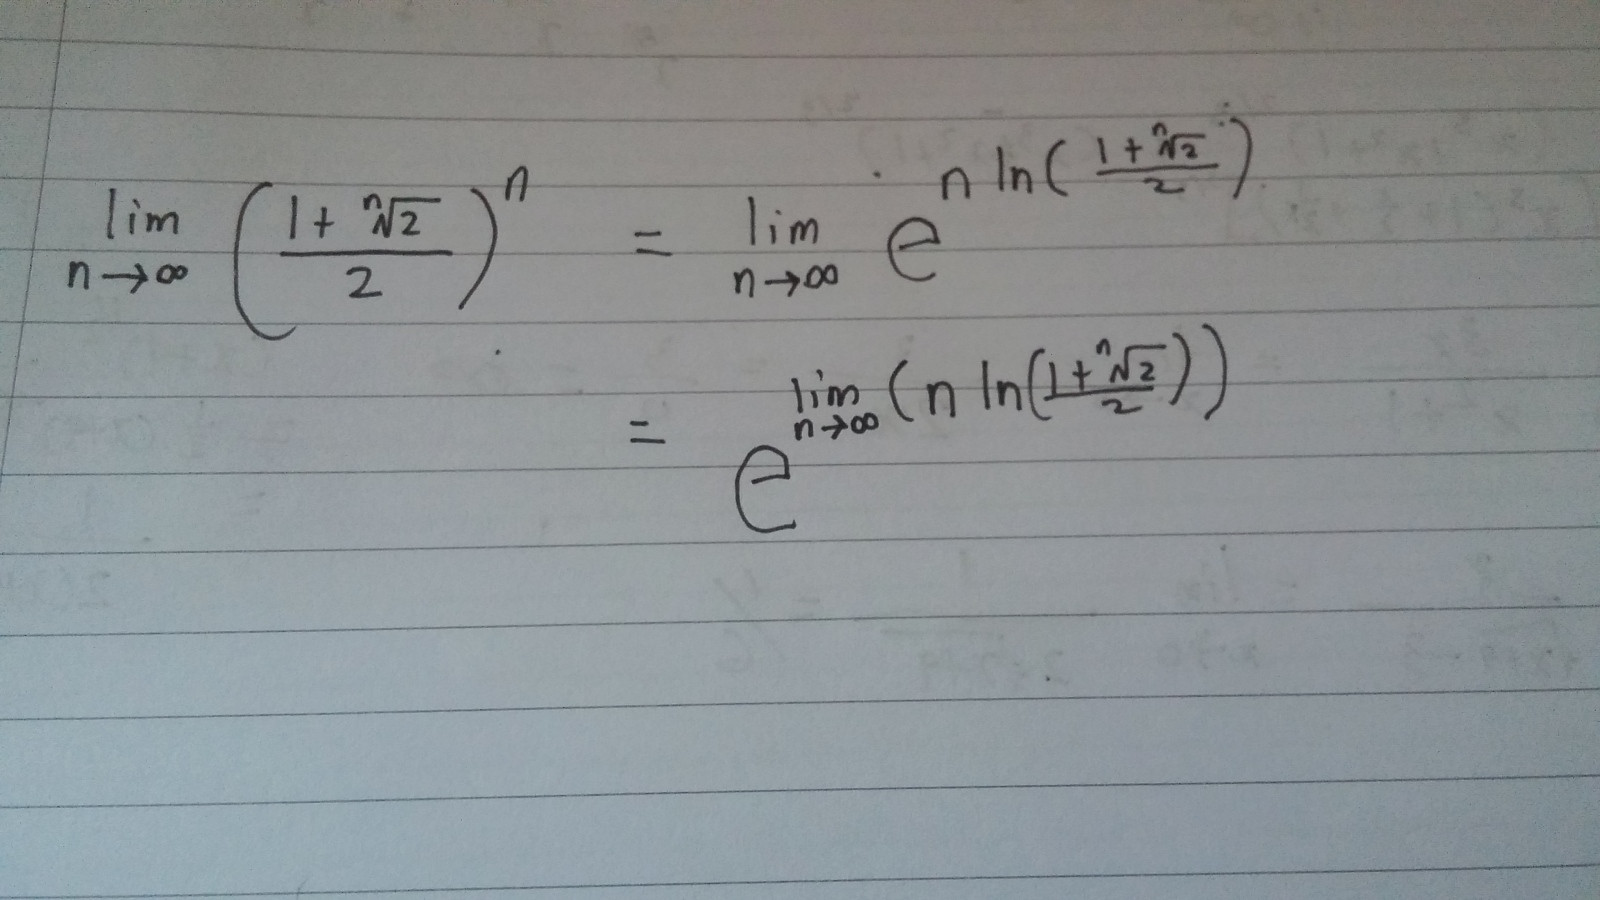 lim n→∞ ( (1 + ⁿ√2) / 2 )ⁿ = lim n→∞ e^(n ln( (1 + ⁿ√2) / 2 ))
= e^(lim n→∞ (n ln( (1 + ⁿ√2) / 2 )))